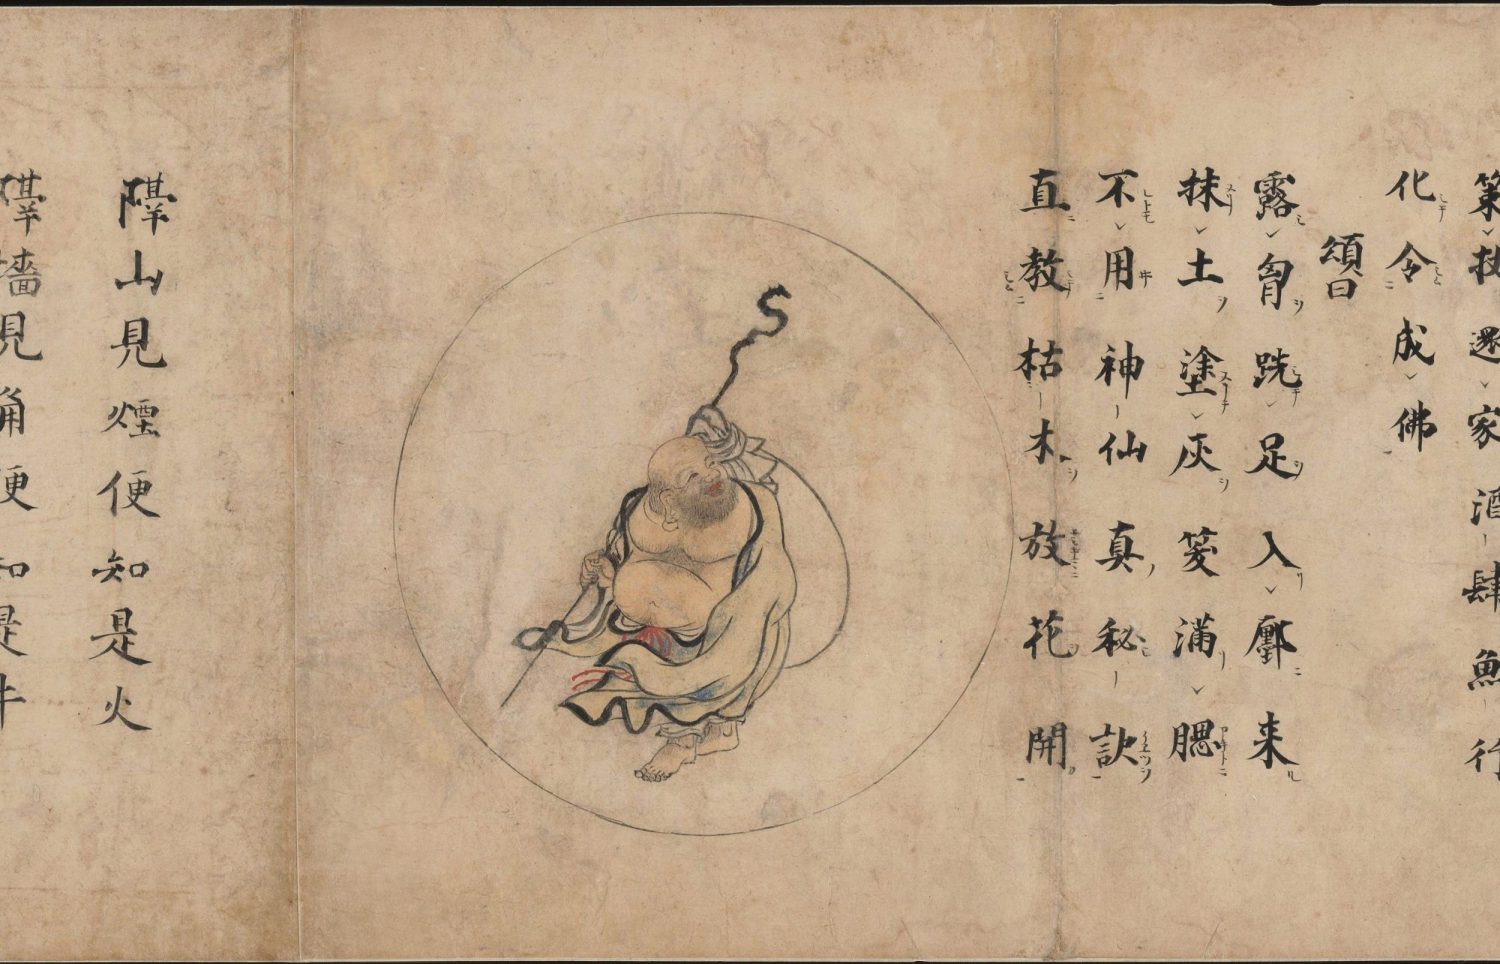 策杖還家酒肆魚行
化令成佛
頌曰
露胷跣足入鄽来
抹土塗灰笑満腮
不用神仙真秘訣
直教枯木放花開
隔山見煙便知是火
隔墻見角便知是牛